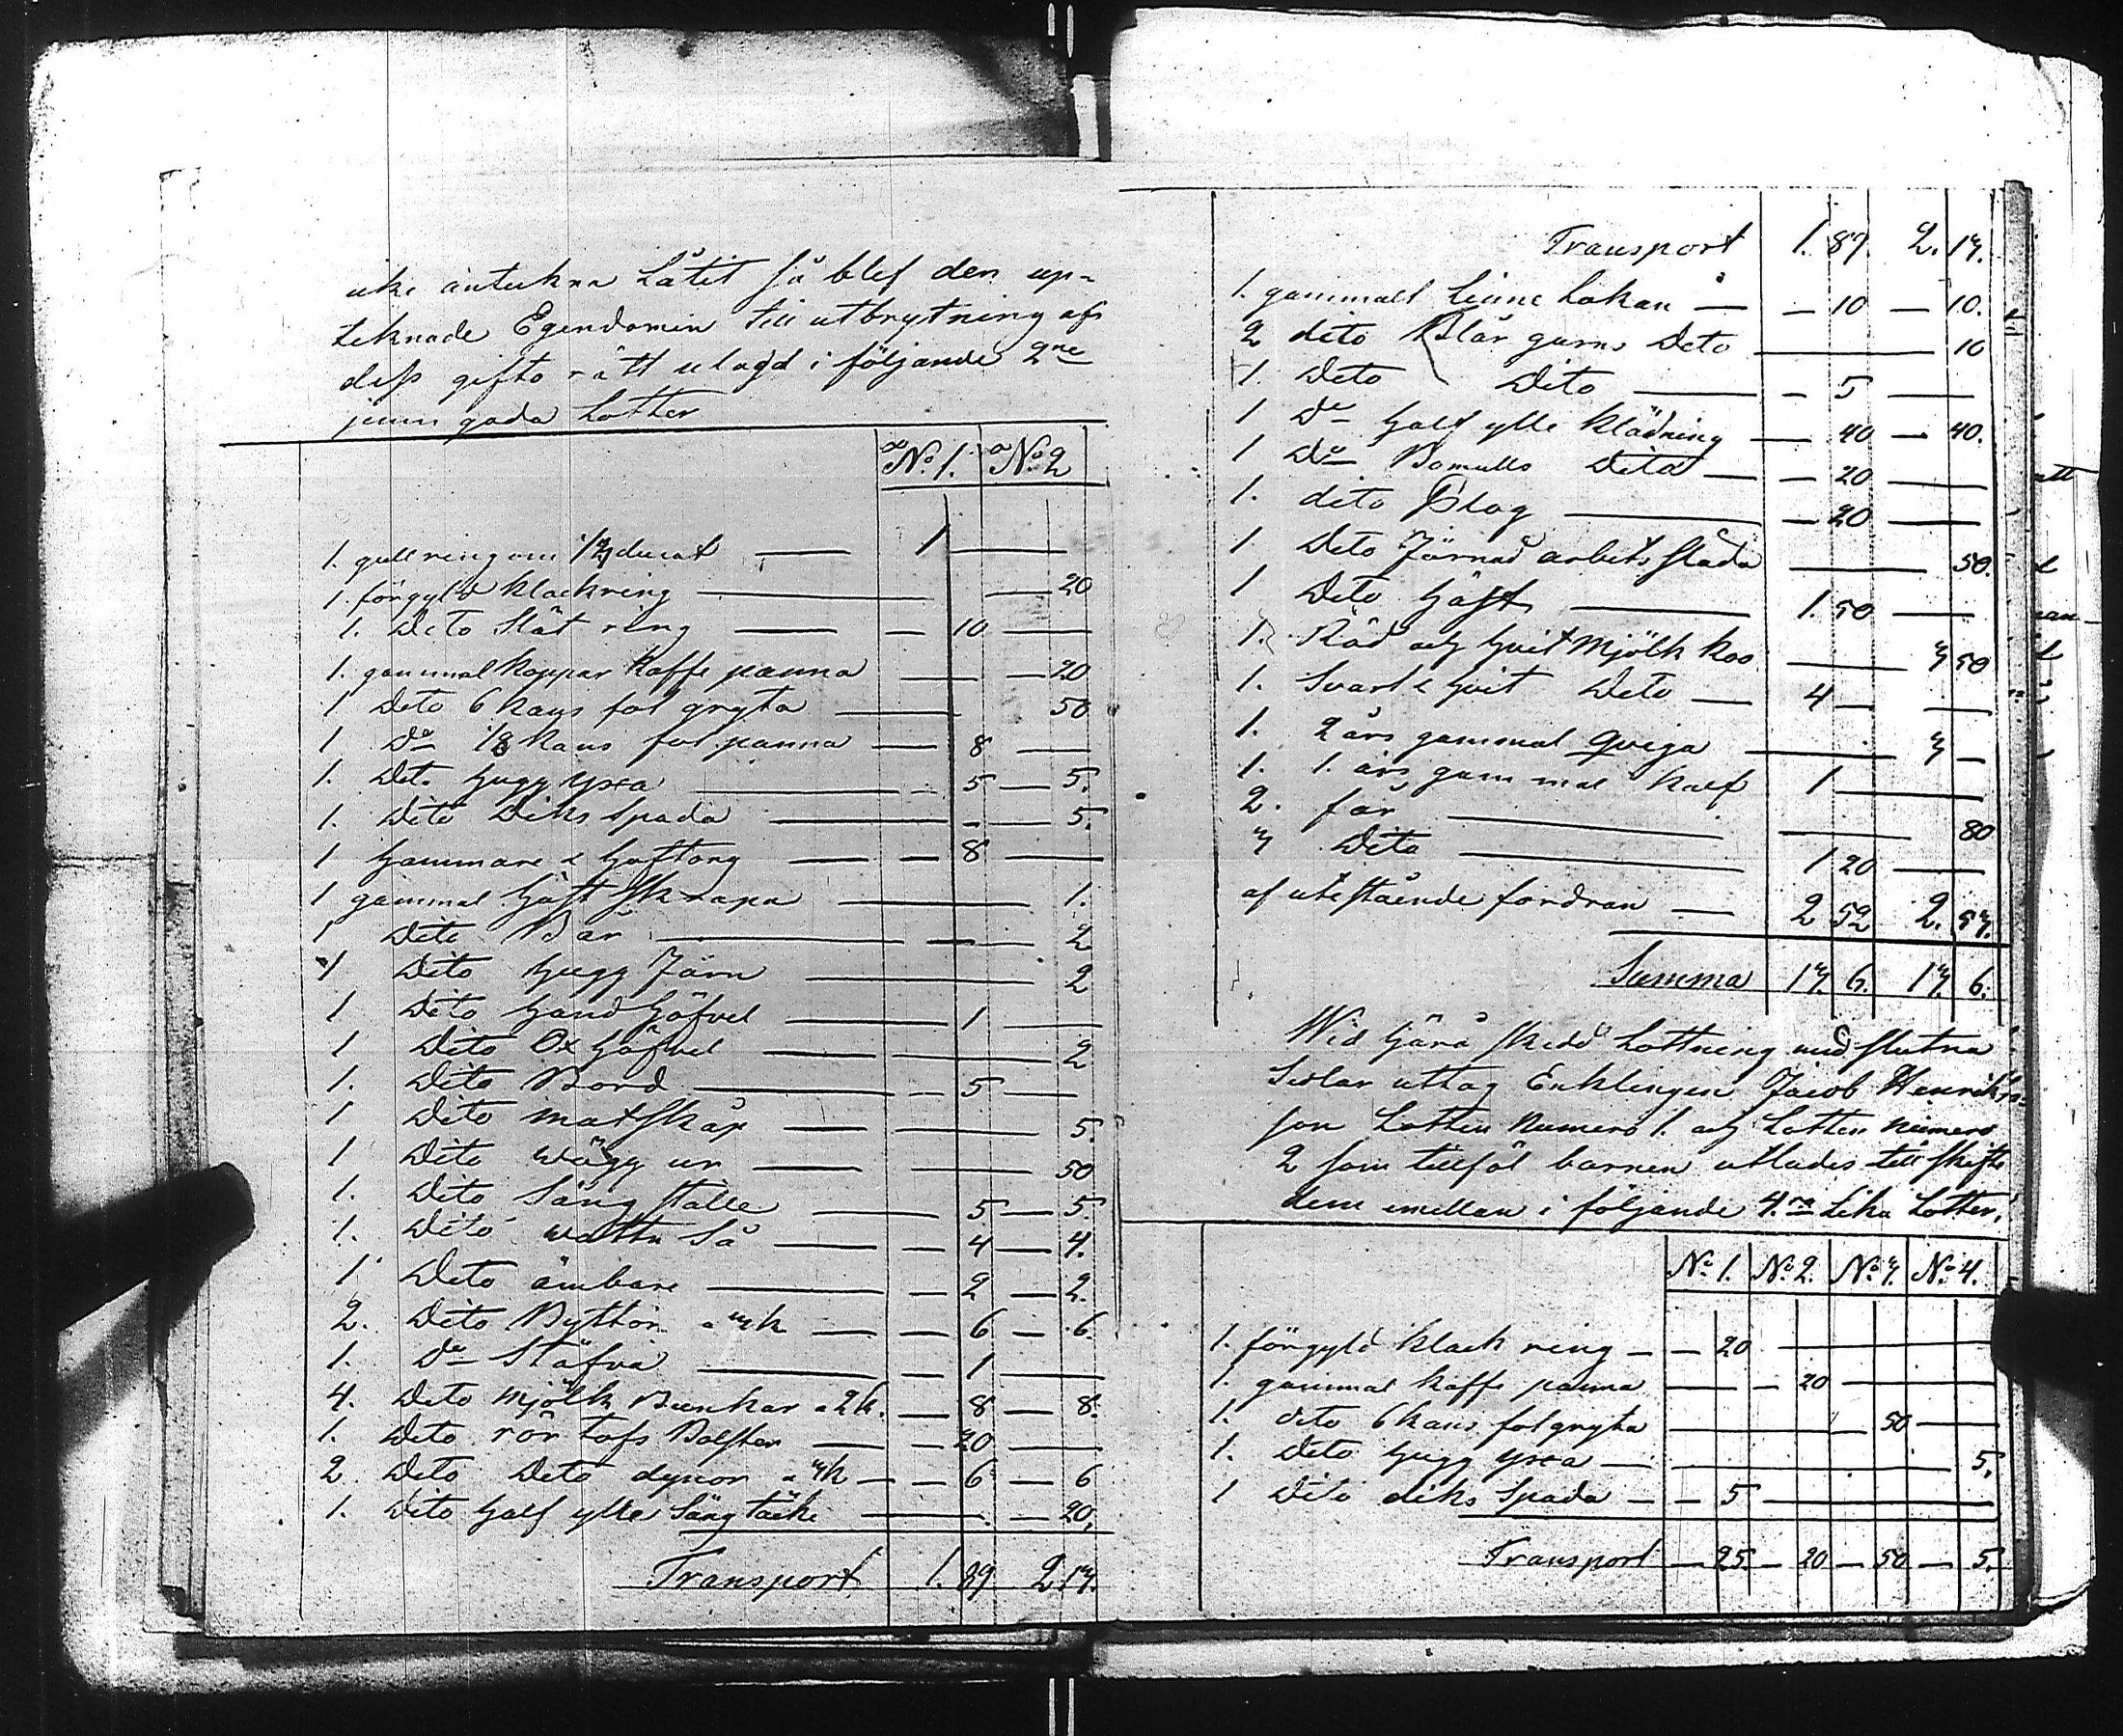 icke anteckna Låtit så blef den up-
teknade Egendomen till utbrytning af
dess gifto rätt utlagd i följande 2ne
jämngoda Lotter
No 1. No 2
1. gullring om 1/2 ducat — 1 —
1. förgyld klackring — 20
1. Dito Slät ring — 10 —
1. gammal koppar Kaffe panna — 20
1 Dito 6 kans fot gryta — 50
1 Do 1/8 kans fot panna — 8 —
1. Dito hugg yxa — 5 — 5.
1. Dito Diks Spada — 5.
1 hammare & Hoftång — 8 —
1 gammal häst skrapa — 1.
1 Dito Bår — 2
1 Dito hugg Järn — 2
1 Dito hand höfvel — 1 —
1 Dito Ox höfvel — 2
1. Dito Bord — 5 —
1 Dito matskåp — 5.
1 Dito wägg ur — 50
1. Dito Säng ställe — 5 — 5.
1. Dito wattu Så — 4 — 4.
1 Dito ämbare — 2 — 2.
2. Dito Byttor a 3 k — 6 — 6
1. Do Stäfva — 1 —
4. Dito mjölk Bunkar a 2 k. — 8 — 8.
1. Dito rör tofs Bolster — 20 —
2 Dito Dito dynor a 3 k — 6 — 6
1. Dito half ylle Säng täcke — 20.
Transport 1. 89 2 13.
Transport 1. 89. 2. 13.
1. gammalt Linne Lakan — 10 — 10.
2 dito Blår garns Dito — 10
1. Dito Dito — 5 —
1 Do half ylle klädning — 40 — 40.
1 Do Bomulls Dito — 20 —
1. dito Plog — 20 —
1 Dito Järnad arbets släda — 50.
1 Dito Häst — 1. 50 —
1. Röd och hvit Mjölk koo — 3 50
1. Svart & hvit Dito — 4 —
1. 2 års gammal qviga — 3 —
1. 1. års gammal kalf 1 —
2. får — 80
3 Dito — 1 20 —
af utestående fordran — 2 52 2. 53.
Summa 13. 6. 13. 6.
Wid härå skedd Lottning med slutna
Sedlar uttog Enklingen Jacob Henriks-
son Lotten Numero 1. och Lotten numero
2 som tillföl barnen utlades till skifte
dem emellan i följande 4.ra Lika Lotter.
No 1. No 2. No 3. No 4.
1. förgyld klack ring — 20 —
1. gammal kaffe panna — 20 —
1. dito 6 kans fotgryta — 50 —
1. Dito hugg yxa — 5.
1 Dito diks Spada — 5 —
Transport — 25 — 20 — 50 — 5.